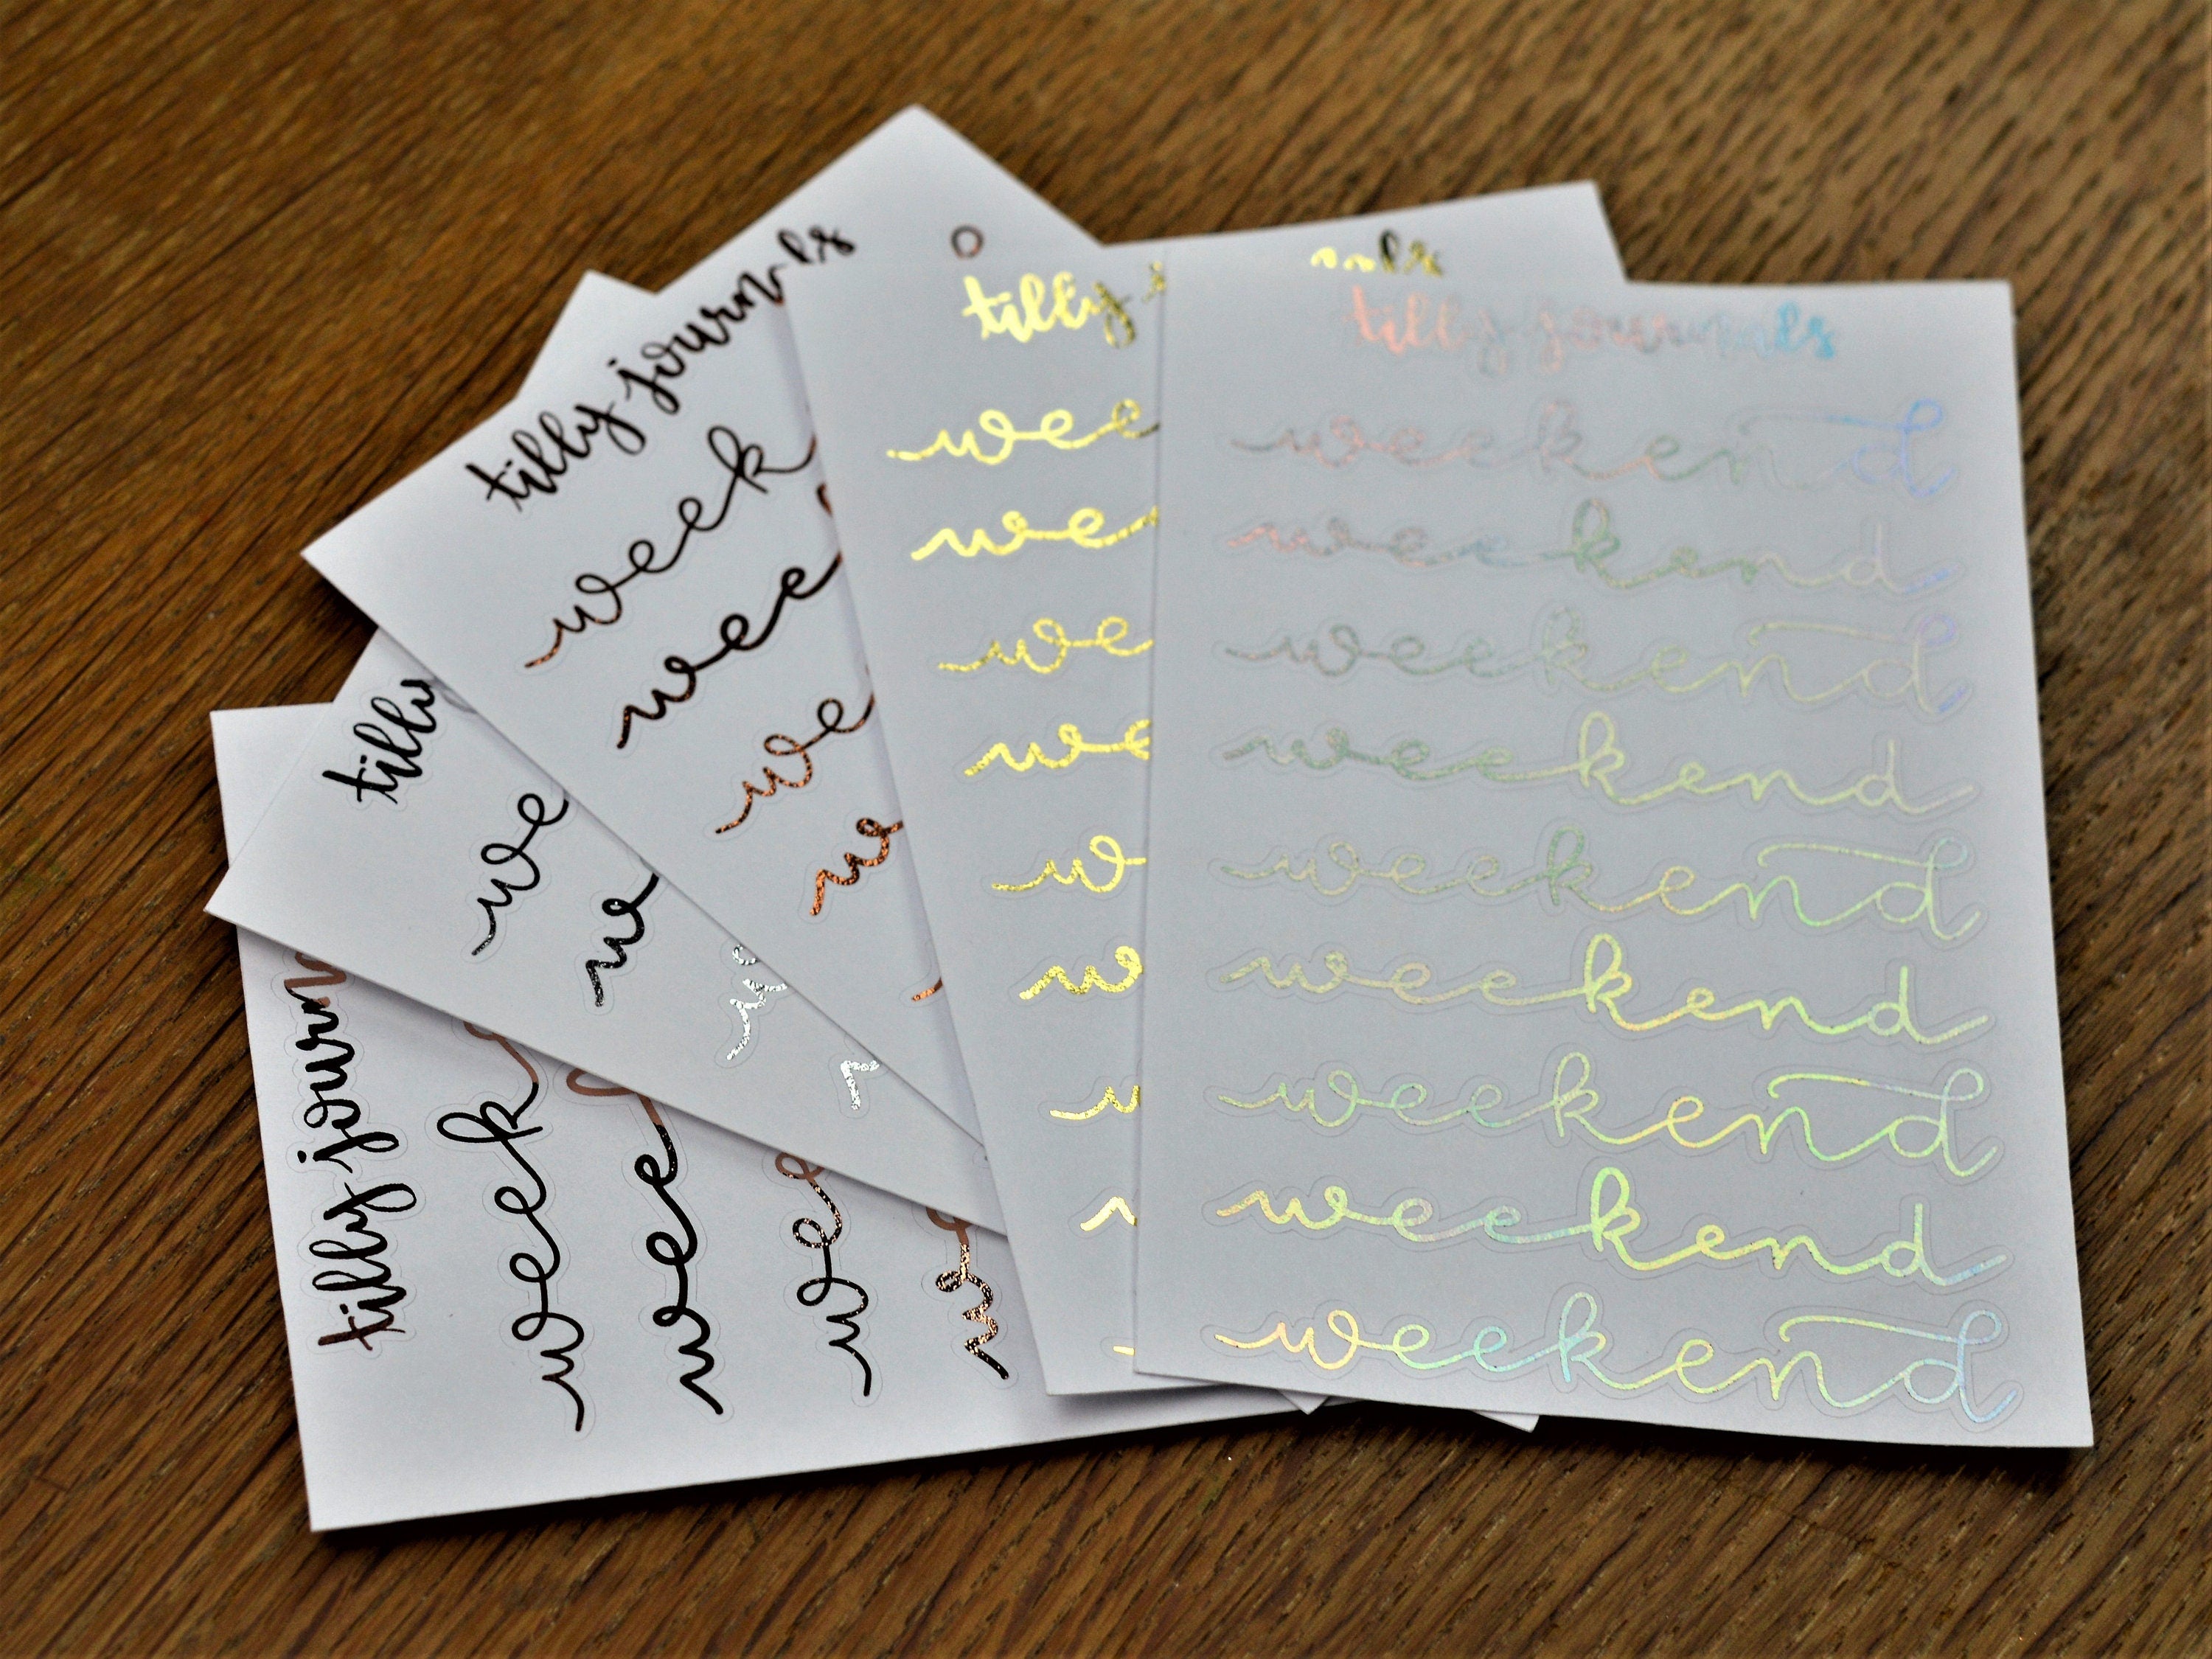 tilly journals
weekend
weekend
weekend
weekend
weekend
weekend
weekend
weekend
weekend
tilly
wee
we
we
we
w
w
tilly journals
week
wee
we
w
tilly
we
w
tilly journ
week
wee
we
w